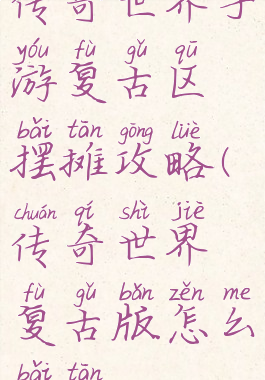 传奇世界手
yóu fù gǔ qū
游复古区
bǎi tān gōng lüè
摆摊攻略(
chuán qí shì jiè
传奇世界
fù gǔ bǎn zěn me
复古版怎么
bǎi tān